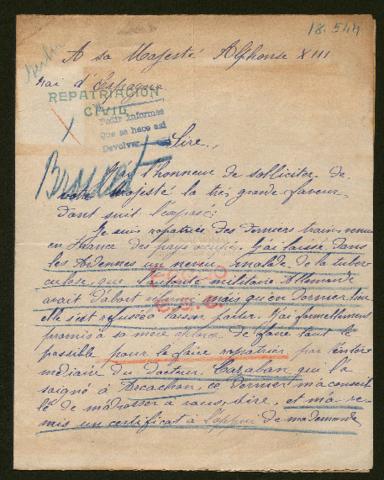 18.544
A Sa Majesté Alphonse XIII
Roi d'Espagne
REPATRIACION
CIVIL
Pedir informes
Que se hace así
Devolver
X
Sire,
J'ai l'honneur de solliciter de
votre Majesté la très grande faveur
dont suit l'exposé:
Je suis rapatriée des derniers trains venus
en France des pays occupés. J'ai laissé dans
les Ardennes un neveu malade de la tuber
culose, que l'autorité militaire Allemande
avait d'abord mais qu'en dernier lieu
elle s'est refusée à laisser partir. J'ai formellement
promis à sa mère de faire tout le
possible pour le faire rapatrier par l'entre
médiaire du docteur Lalaban qui l'a
soigné à Arcachon, ce dernier m'a conseil
lé de m'adresser à vous, Sire, et m'a re
mis un certificat à l'appui de ma demande